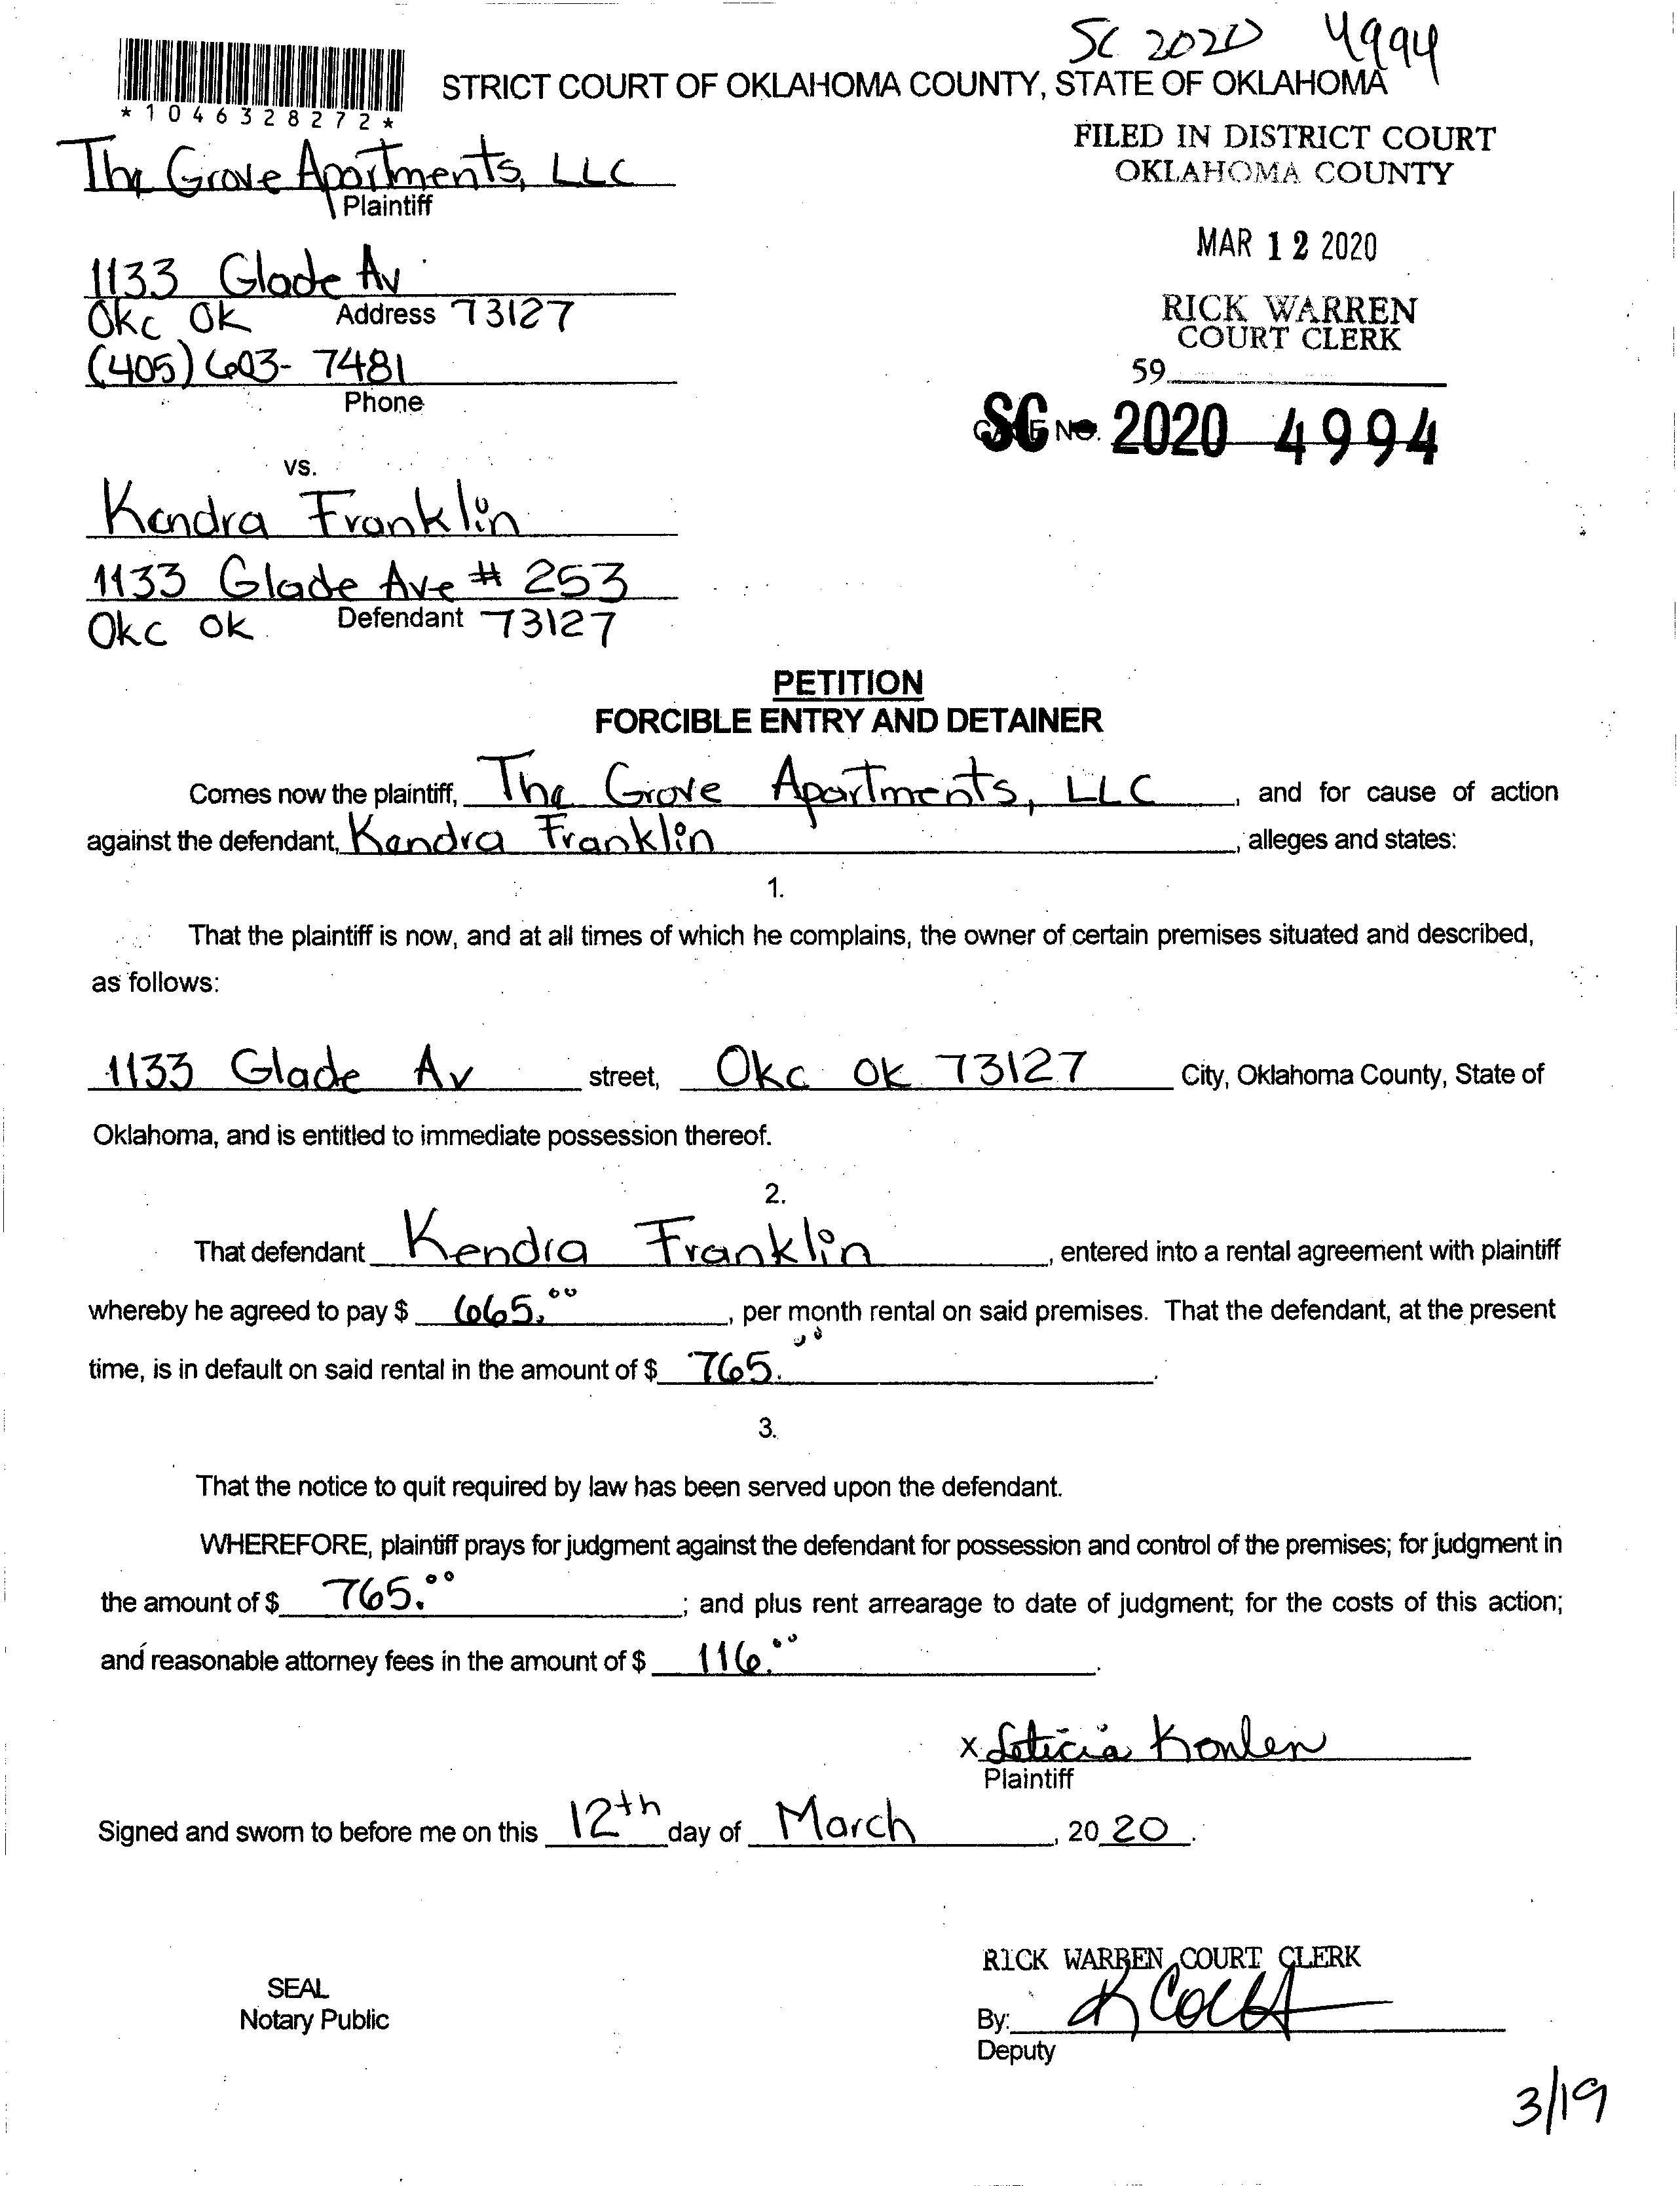 SC 2020 4994
STRICT COURT OF OKLAHOMA COUNTY, STATE OF OKLAHOMA
*1046328272*
FILED IN DISTRICT COURT
OKLAHOMA COUNTY
The Grove Apartments, LLC
Plaintiff
MAR 12 2020
1133 Glade Av
Okc Ok Address 73127
RICK WARREN
COURT CLERK
(405) 603-7481
59
Phone
CASE NO.
SC - 2020 4994
vs.
Kendra Franklin
1133 Glade Ave # 253
Okc Ok Defendant 73127
PETITION
FORCIBLE ENTRY AND DETAINER
Comes now the plaintiff, The Grove Apartments, LLC, and for cause of action
against the defendant, Kendra Franklin, alleges and states:
1.
That the plaintiff is now, and at all times of which he complains, the owner of certain premises situated and described,
as follows:
1133 Glade Av street, Okc Ok 73127 City, Oklahoma County, State of
Oklahoma, and is entitled to immediate possession thereof.
2.
That defendant Kendra Franklin, entered into a rental agreement with plaintiff
whereby he agreed to pay $ 665.00, per month rental on said premises. That the defendant, at the present
time, is in default on said rental in the amount of $ 765.00.
3.
That the notice to quit required by law has been served upon the defendant.
WHEREFORE, plaintiff prays for judgment against the defendant for possession and control of the premises; for judgment in
the amount of $ 765.00; and plus rent arrearage to date of judgment; for the costs of this action;
and reasonable attorney fees in the amount of $ 116.00.
x Leticia Konlen
Plaintiff
Signed and sworn to before me on this 12th day of March, 2020.
RICK WARREN COURT CLERK
SEAL
Notary Public
By:
Deputy
3/19